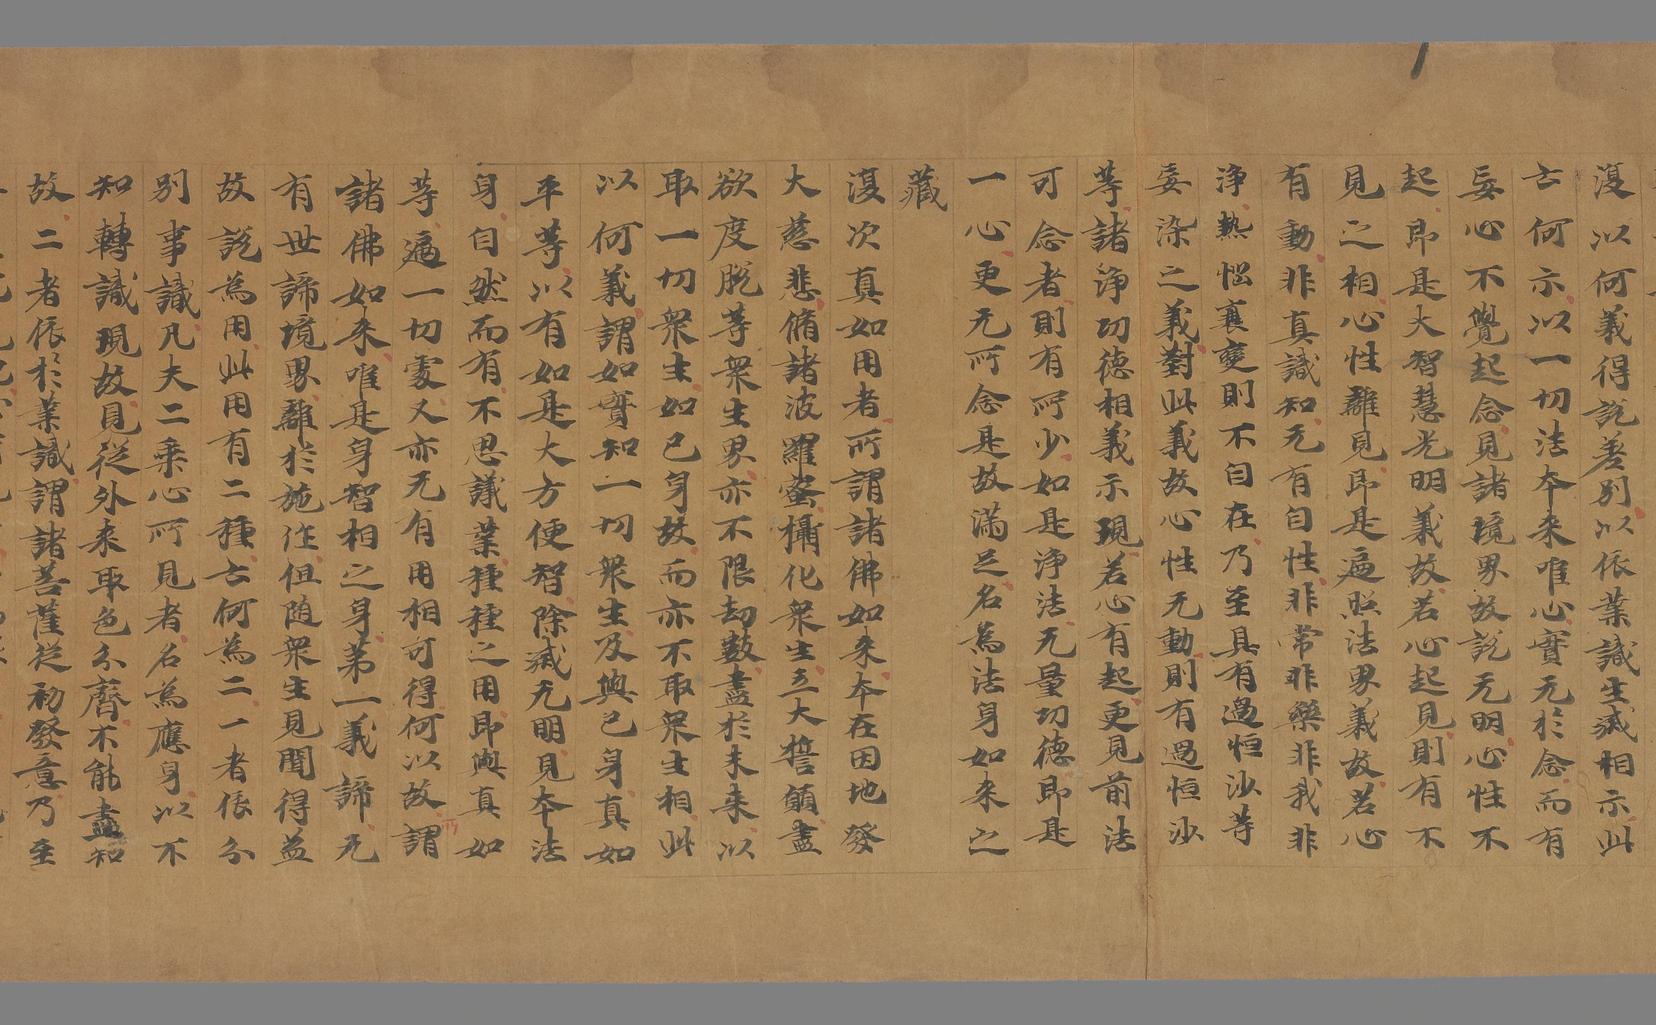 復以何義得說差別以依業識生滅相示此
云何示以一切法本来唯心實无於念而有
妄心不覺起念見諸境界故說无明心性不
起即是大智慧光明義故若心起見則有不
見之相心性離見即是遍照法界義故若心
有動非真識知无有自性非常非樂非我非
淨熱惱衰變則不自在乃至具有過恒沙等
妄染之義對此義故心性无動則有過恒沙
等諸淨功德相義示現若心有起更見前法
可念者則有所少如是淨法无量功德即是
一心更无所念是故滿足名為法身如来之
藏
復次真如用者所謂諸佛如来本在因地發
大慈悲脩諸波羅蜜攝化衆生立大誓願盡
欲度脫等衆生界亦不限劫數盡於未来以
取一切衆生如己身故而亦不取衆生相此
以何義謂如實知一切衆生及與己身真如
平等以有如是大方便智除滅无明見本法
身自然而有不思議業種種之用即與真如
等遍一切處又亦无有用相可得何以故謂
諸佛如来唯是身智相之身第一義諦无
有世諦境界離於施作但随衆生見聞得益
故說為用此用有二種云何為二一者依分
別事識凡夫二乘心所見者名為應身以不
知轉識現故見從外来取色分齊不能盡知
故二者依於業識謂諸菩薩從初發意乃至